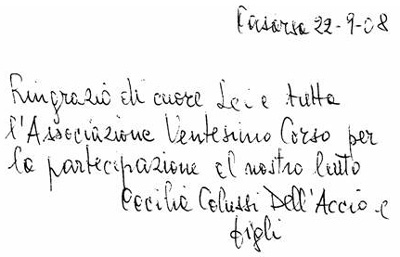 Casarsa 22-9-08
Ringrazio di cuore Lei e tutta
l'Associazione Ventesimo Corso per
la partecipazione al nostro lutto
Cecilia Colussi Dell'Accio e
figli